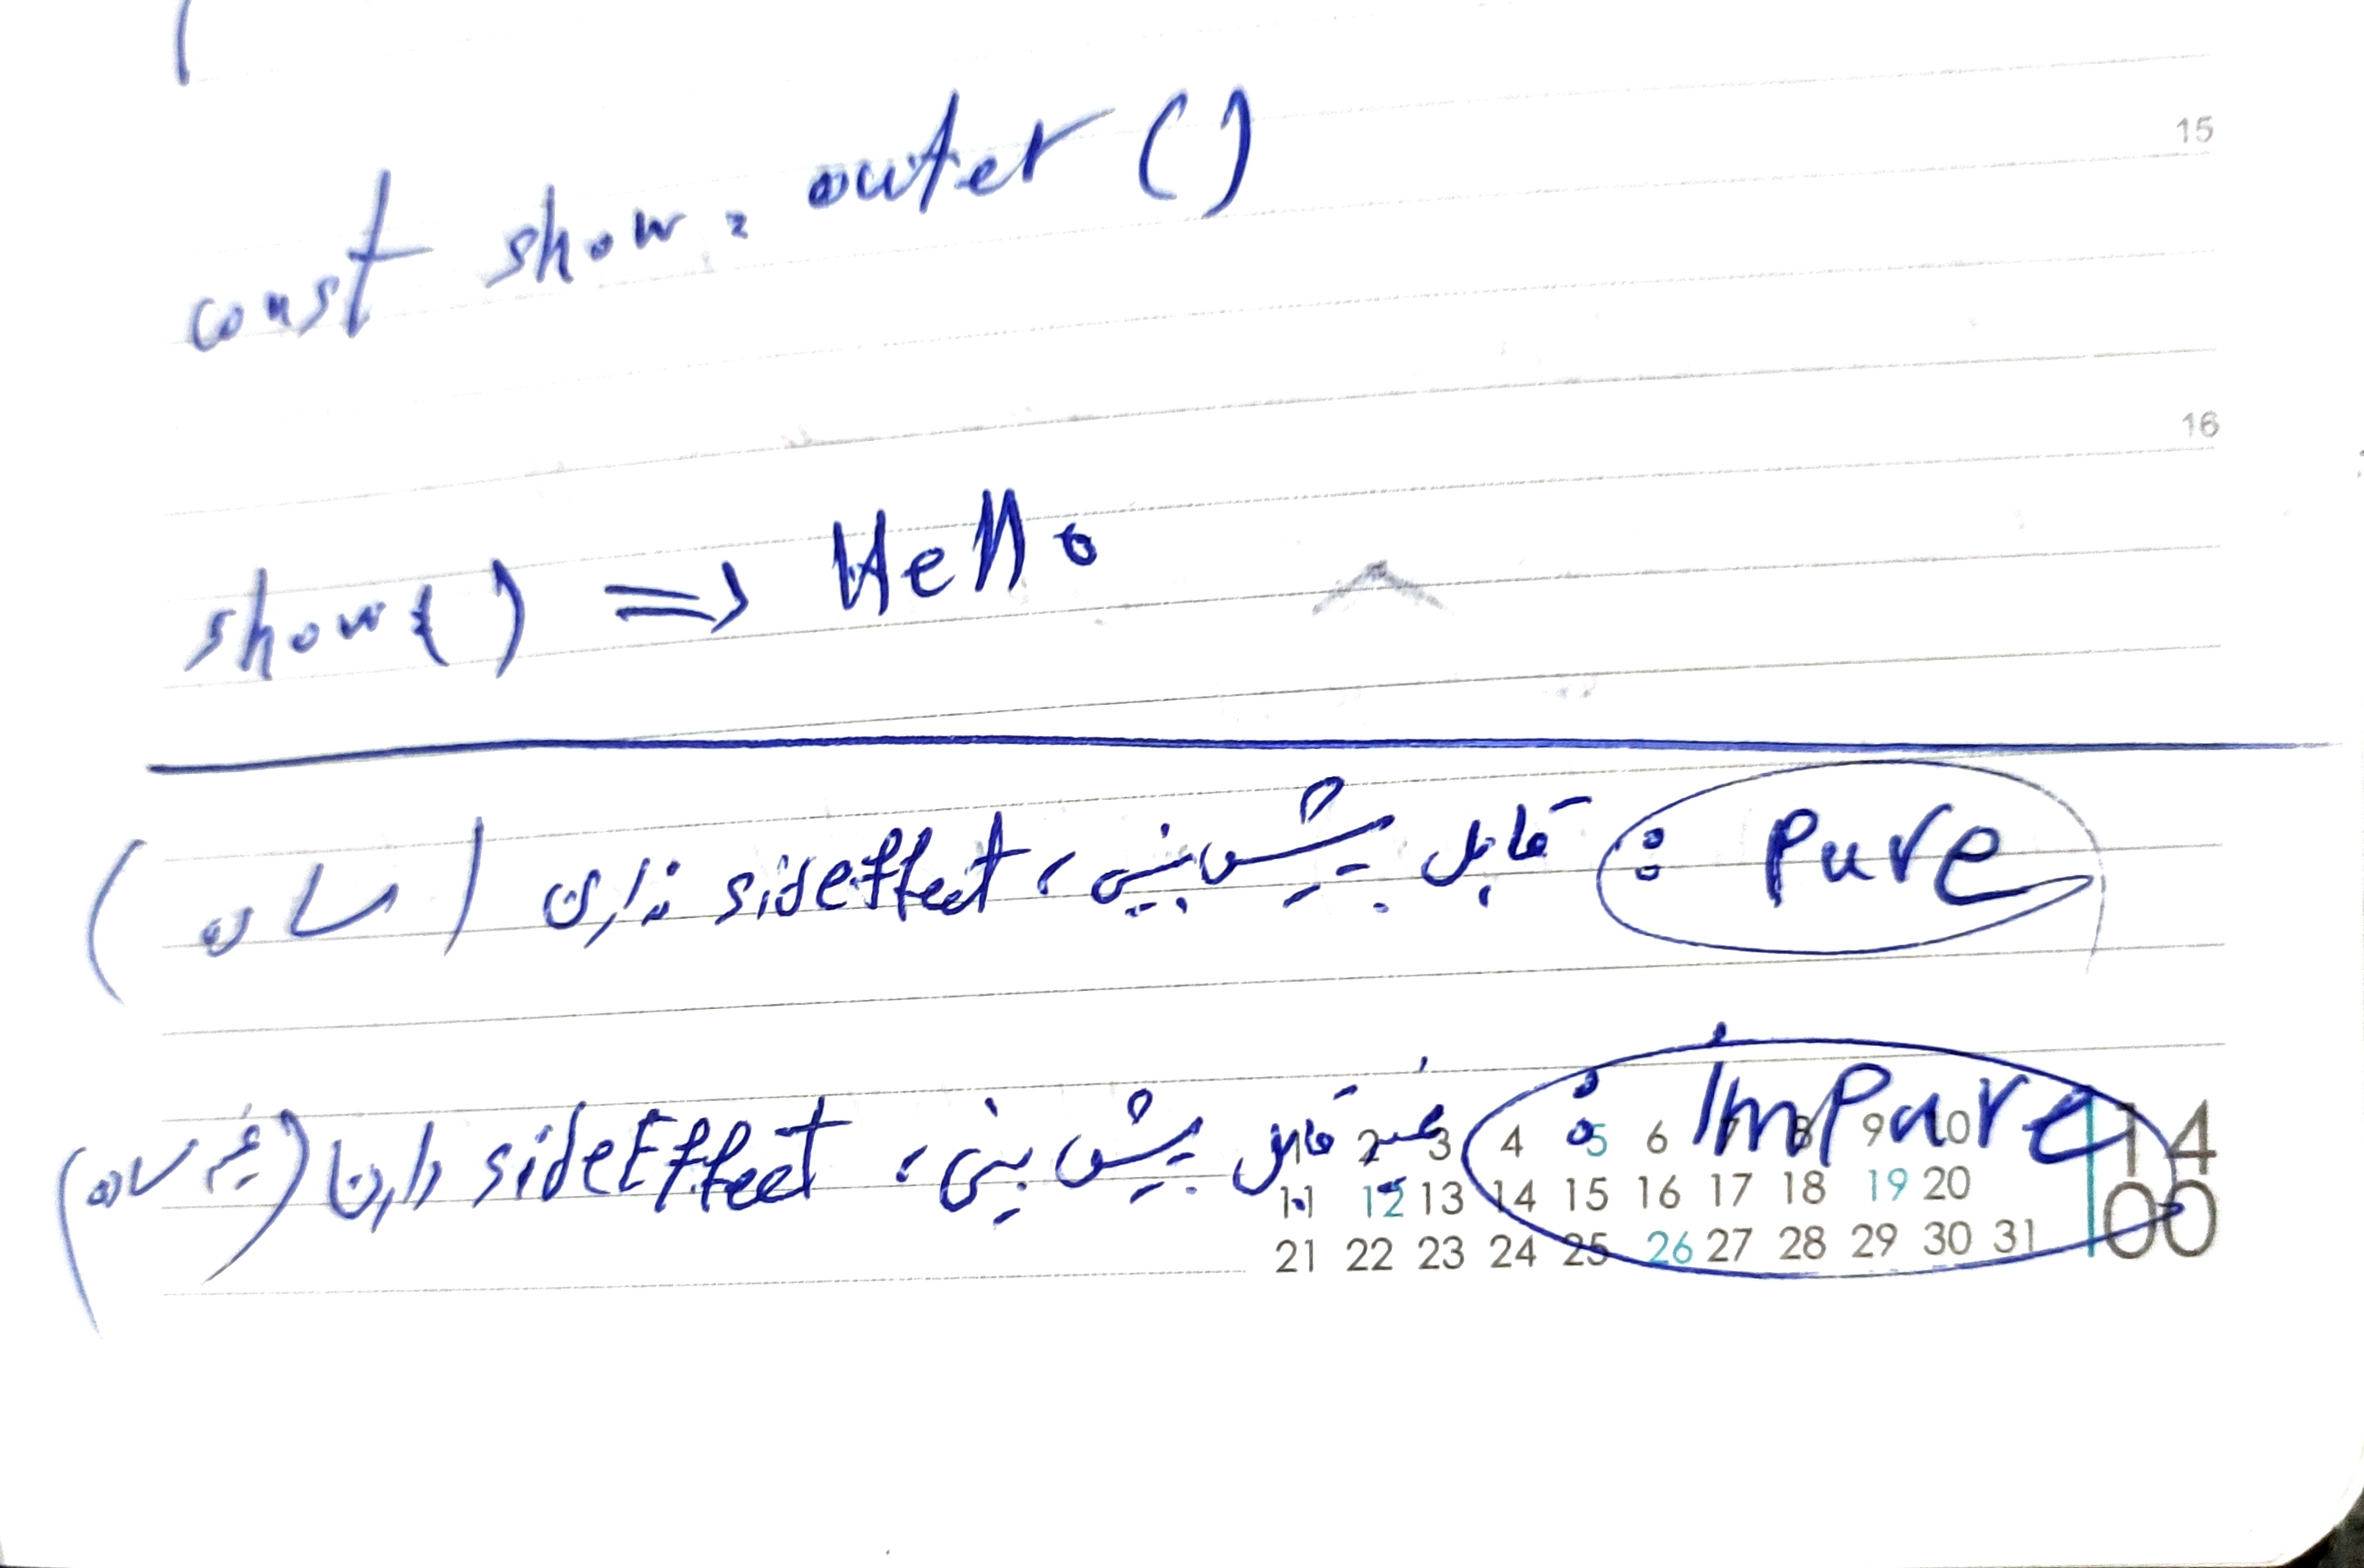 const show = outer ()
15
16
show() => Hello
Pure : قابل پیش‌بینی، sideffect ندارن (ساده)
Impure : غیر قابل پیش بینی، sideEffect دارن
1 2 3 4 5 6 7 8 9 10
11 12 13 14 15 16 17 18 19 20
21 22 23 24 25 26 27 28 29 30 31
14
00